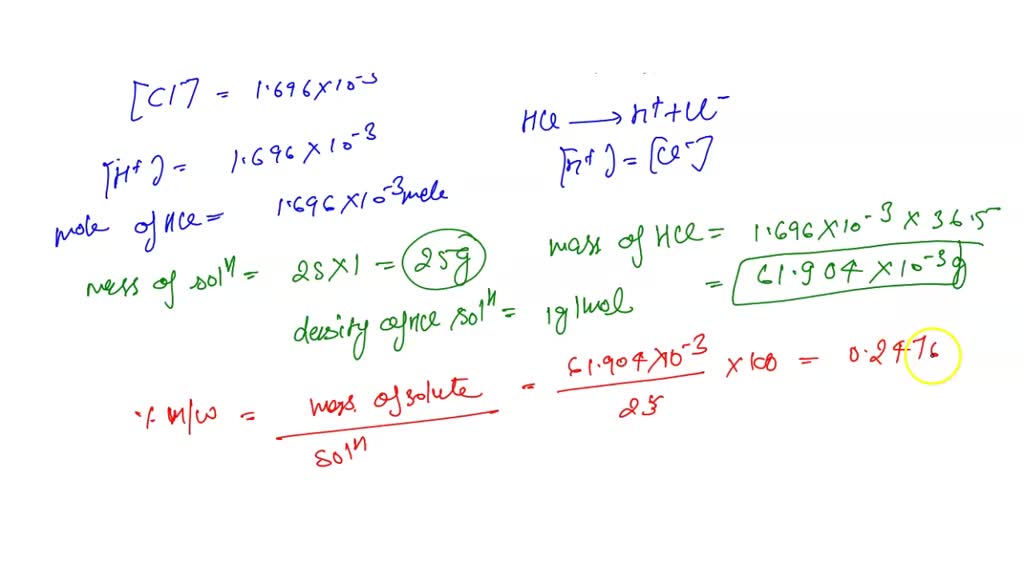 [Cl⁻] = 1.696×10⁻³
HCl ⟶ H⁺ + Cl⁻
[H⁺] = 1.696 × 10⁻³
[H⁺] = [Cl⁻]
mole of HCl = 1.696×10⁻³ mole
mass of solⁿ = 25×1 = 25g
mass of HCl = 1.696×10⁻³ × 36.5
= 61.904 ×10⁻³g
density of HCl solⁿ = 1g/mol
% W/W = mass of solute / solⁿ = 61.904×10⁻³ / 25 ×100 = 0.2476